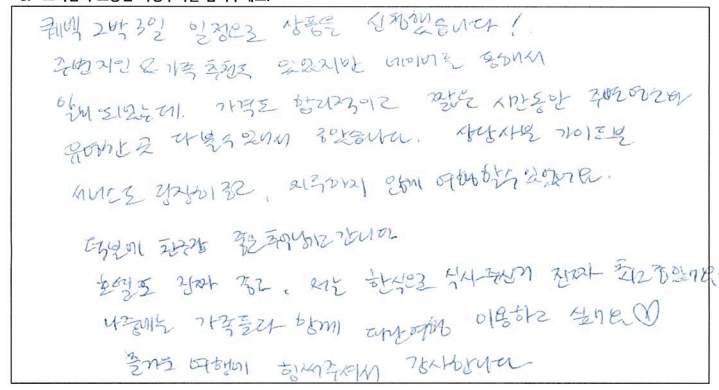 퀘백 2박 3일 일정으로 상품을 신청했습니다!
주변지인 및 가족 추천도 있었지만 네이버를 통해서
알게되었는데. 가격도 합리적이고 짧은 시간동안 주변
유명한 곳 다 볼수있어서 좋았습니다. 상담사분 가이드분
서비스도 굉장히 좋고, 지루하지 않게 여행할수있었어요.
덕분에 좋은추억남기고 갑니다
호텔도 진짜 좋고, 저는 한식으로 식사주신거 진짜 최고좋았어요
나중에는 가족들과 함께 이용하고 싶어요♡
즐거운 여행에 힘써주셔서 감사합니다